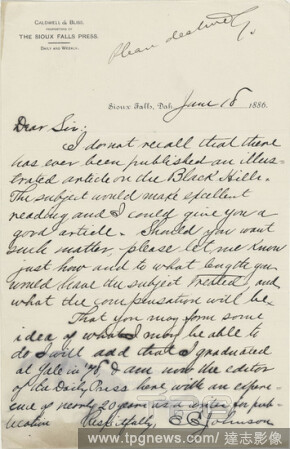 CALDWELL & BLISS,
PROPRIETORS OF
THE SIOUX FALLS PRESS.
DAILY AND WEEKLY.
Please destroy.
Sioux Falls, Dak. June 18 1886.
Dear Sir:
I do not recall that there
has ever been published an illus-
trated article on the Black Hills.
The subject would make excellent
reading and I could give you a
good article. Should you want
such matter, please let me know
just how and to what length you
would have the subject treated, and
what the compensation will be.
That you may form some
idea of what I may be able to
do I will add that I graduated
at Yale in '78 & am now the editor
of the Daily Press here with an experi-
ence of nearly 20 years as a writer for pub-
lication Respectfully, Johnson
TPG
www.tpgnews.com / 達志影像